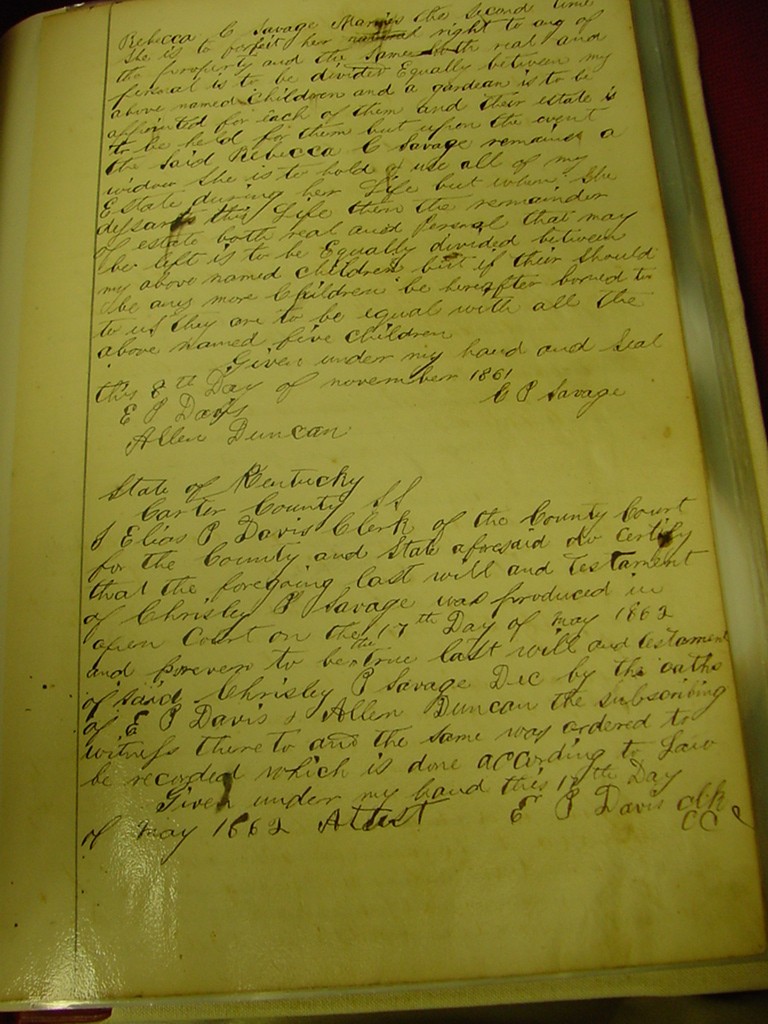 Rebecca C Savage Marries the second time
She is to perfect her natural right to any of
the property and the same both real and
personal is to be divided Equally between my
above named Children and a gardean is to be
appointed for each of them and their estate is
to be held for them but upon the event
the said Rebecca C Savage remains a
widow She is to hold & use all of my
Estate during her Life but when She
desparts this Life then the remainder
of estate both real and Personal that may
be left is to be Equally divided between
my above named children but if their Should
be any more Children be hereafter borned to
to us they are to be equal with all the
above named five children
Given under my hand and Seal
this 8th Day of november 1861
C P Savage
E P Davis
Allen Duncan
State of Kentucky
Carter County SS
I Elias P Davis Clerk of the County Court
for the County and State aforesaid do Certify
that the foregoing last will and Testament
of Chrisley P Savage was produced in
open Court on the 17th Day of may 1862
and proeven to be the true last will and testament
of said Chrisley P Savage Dec by the oaths
of E P Davis & Allen Duncan the subscribing
witness there to and the same was ordered to
be recorded which is done according to Law
Given under my hand this 17th Day
of may 1862 Attest E P Davis clk
CC